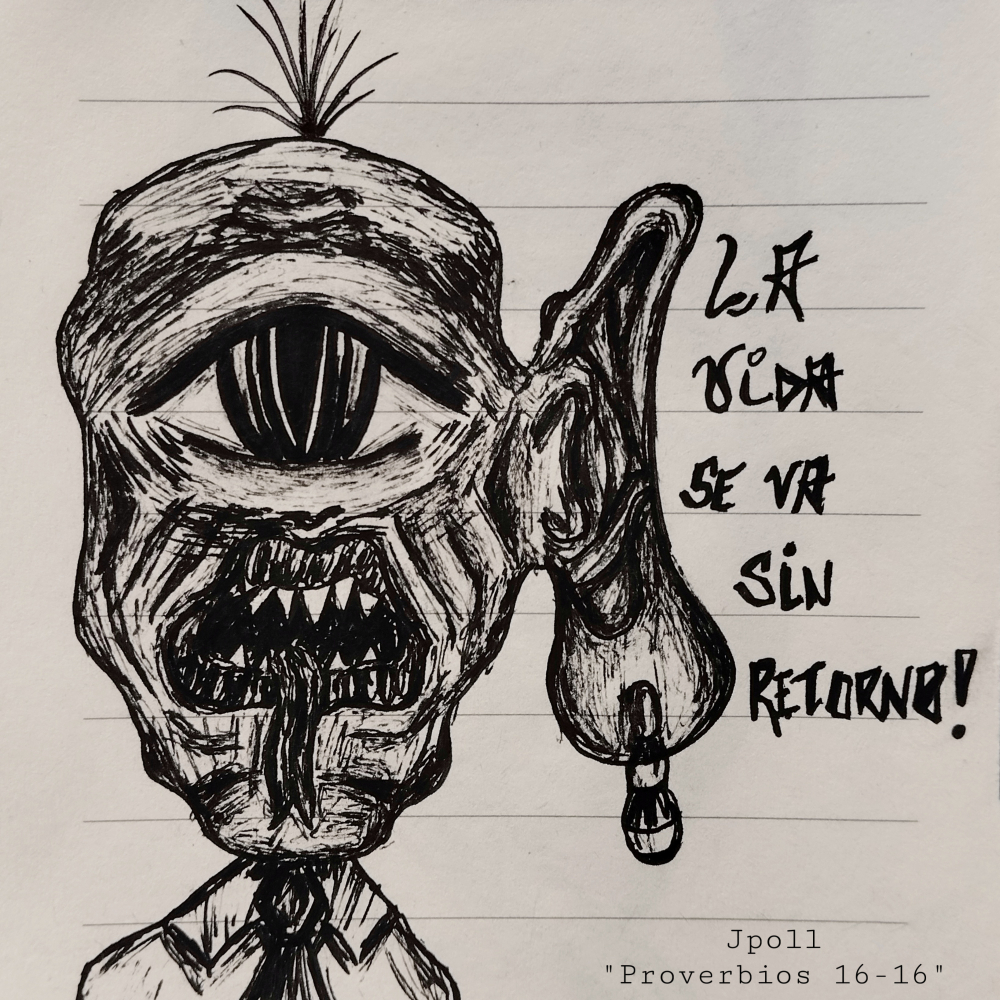 LA
ViDA
SE VA
SiN
RETORNO!
Jpoll
"Proverbios 16-16"